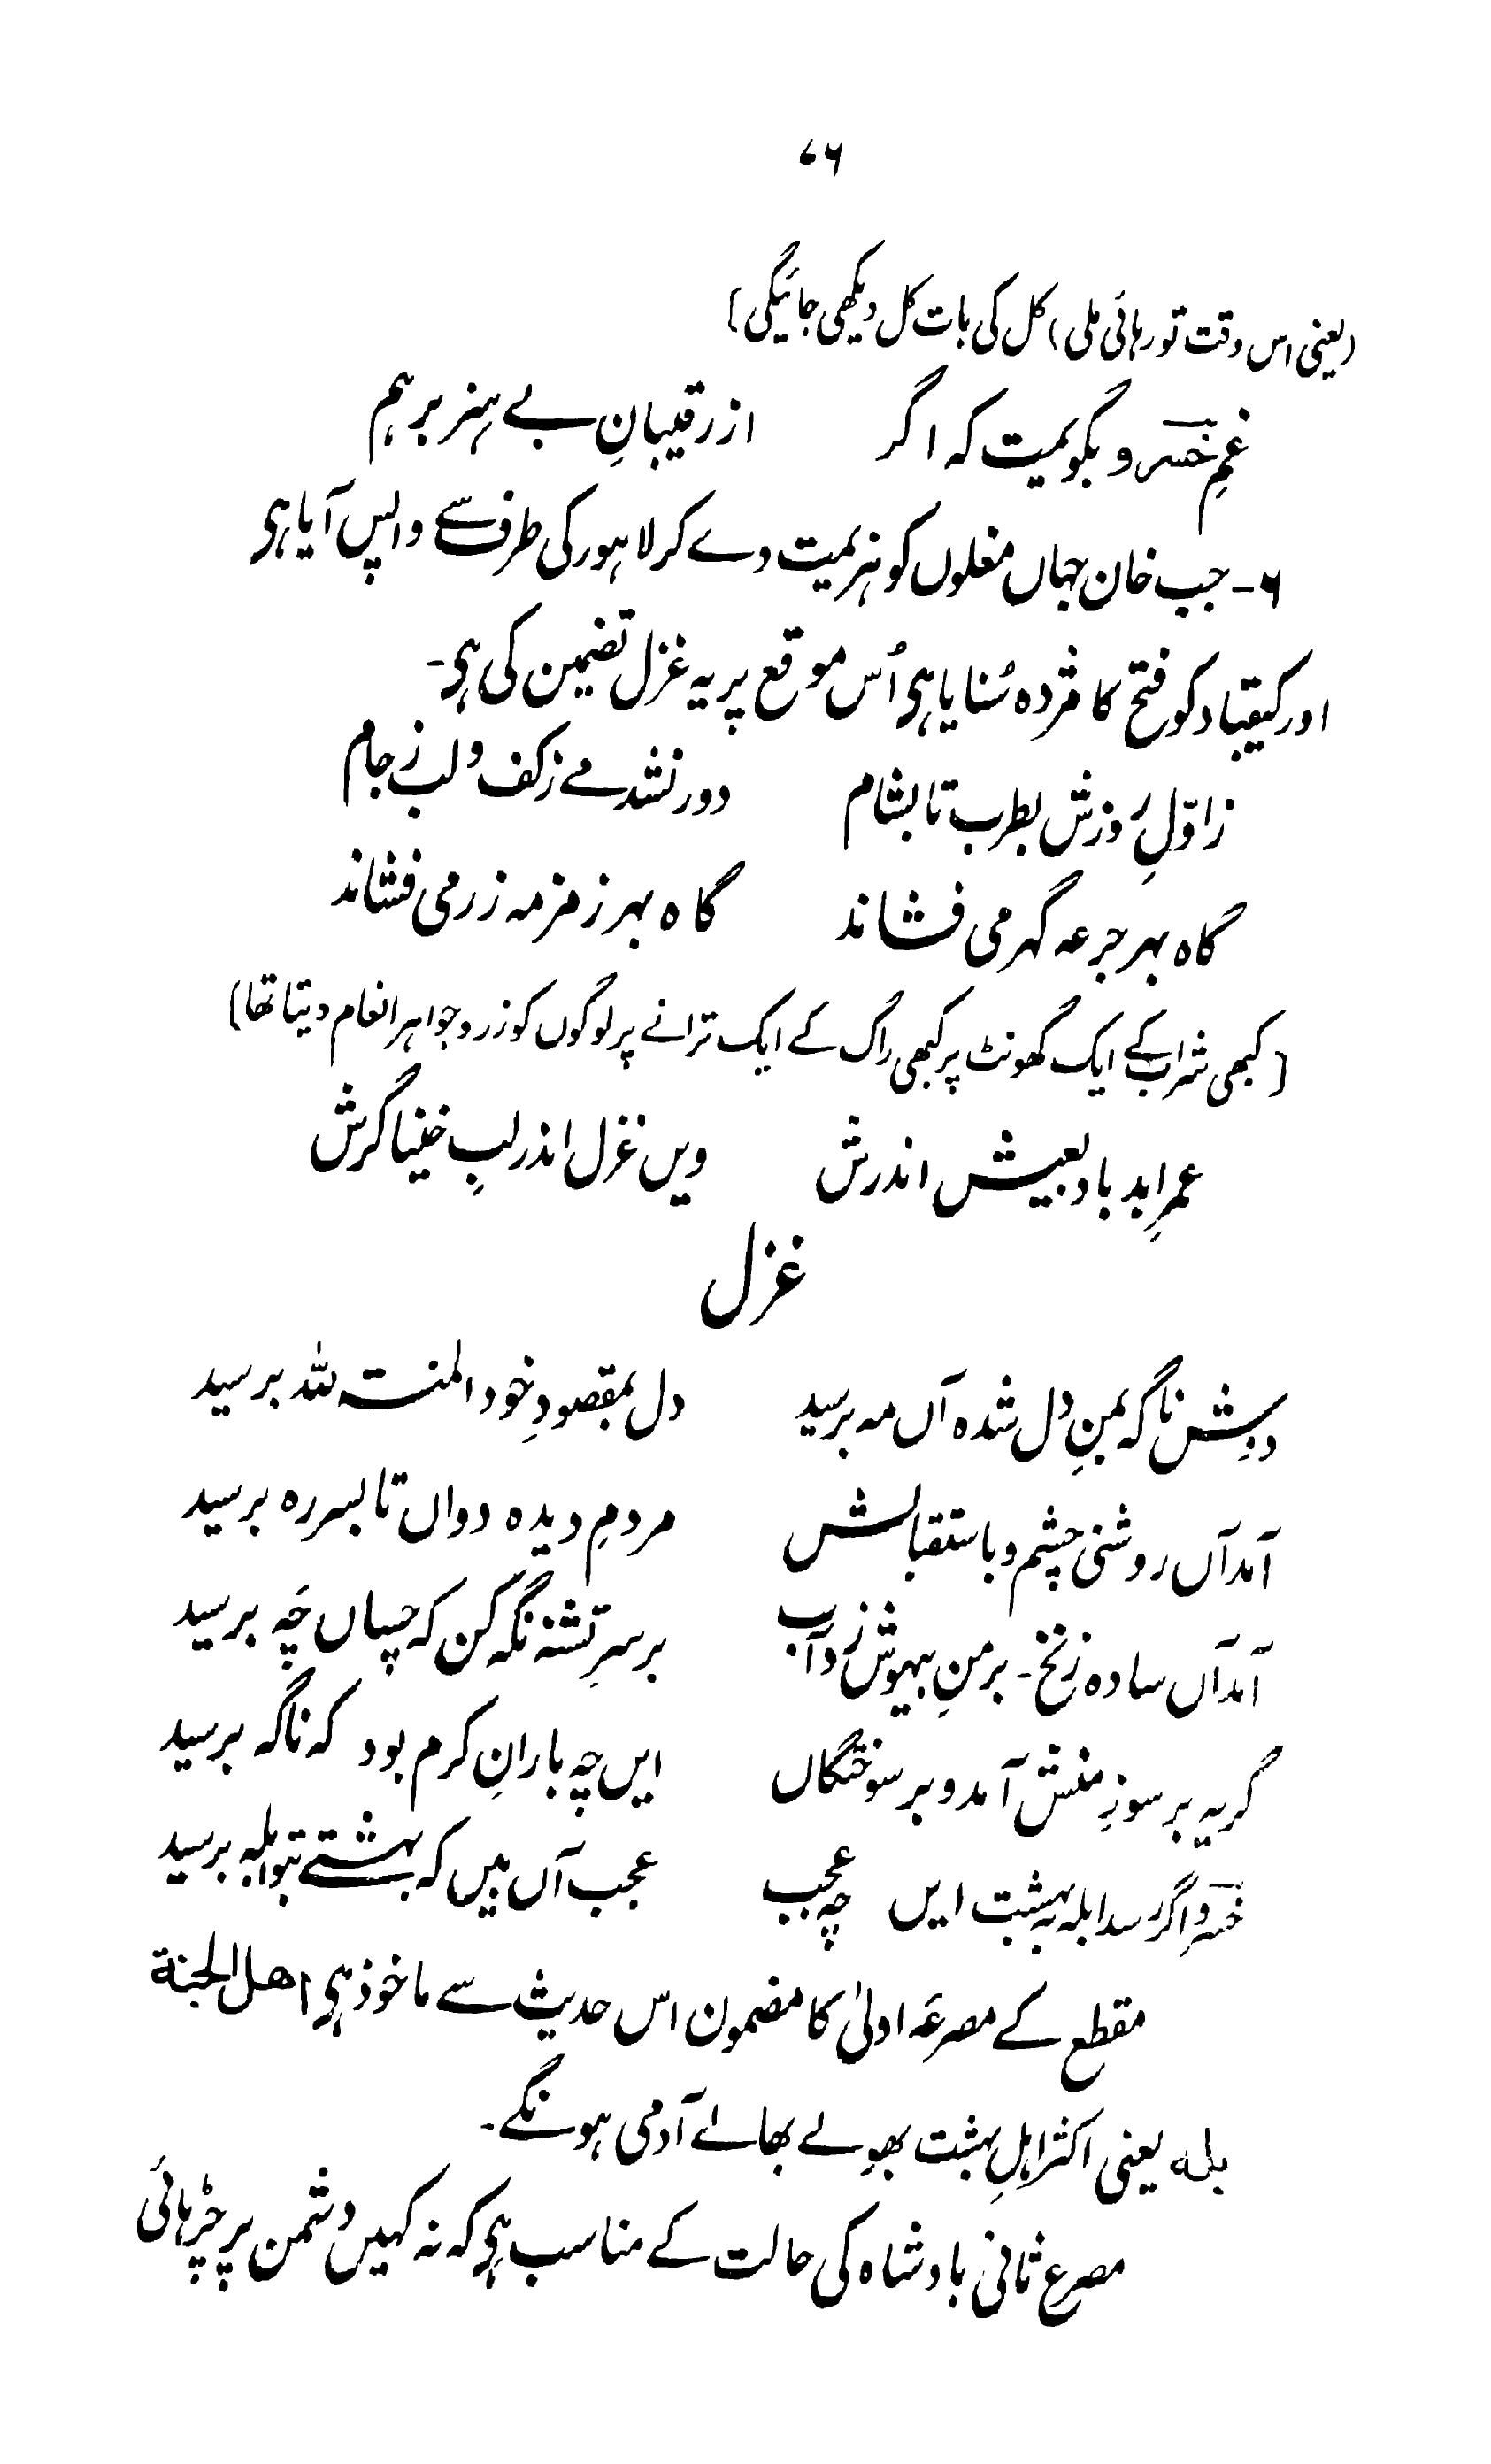 ۷۶
(یعنی اس وقت تو رہائی ملی) کل کی بات کل دیکھی جائیگی)
غمِ خسرو بگویمیت که اگر از رقیبانِ بے ہنر برہم
۶- جب خان جہاں مغلوں کو ہزیمیت دے کر لاہور کی طرف سے واپس آیا ہی
اور کیقباد کو فتح کا مژدہ سُنایا ہی اُس موقع پر یہ غزل تضمین کی ہی-
ز اوّلِ روزش بطرب تا بشام دور نشد مے ز کف و لب ز جام
گاه بہر جرعہ گہر می فشاند گاہ بہر زمزمہ زر می فشاند
[کبھی شراب کے ایک گھونٹ پر کبھی راگ کے ایک ترانے پر لوگوں کو زر و جواہر انعام دیتا تھا)
عمرِ ابد باد بعیش اندرش ویں غزل اندر لبِ خنیاگرش
غزل
دوش ناگہ بمنِ دل شدہ آں مہ برسید دل بمقصودِ خود المنتہ للہ برسید
آمد آں روشنی چشم و باستقبالش مردمِ دیدہ دواں تا بسر رہ برسید
آمد آں سادہ زنخ- بر منِ بیہوش زد آب بر سرِ تشنہ نگہ کن کہ چساں چَہ برسید
گریہ بر سوزِ منش آمد و بر سوختگاں ایں چہ بارانِ کرم بود کہ ناگہ برسید
خسرو اگر رسد ابلہ بہ بہشت ایں چہ عجب عجب آں بیں کہ بہشتے بتو ابلہ برسید
مقطع کے مصرعۂ اولیٰ کا مضمون اس حدیث سے ماخوذ ہی اهل الجنة
بله یعنی اکثر اہلِ بہشت بھولے بھالے آدمی ہونگے-
مصرع ثانی بادشاہ کی حالت کے مناسب ہی کہ نہ کہیں دشمن پر چڑہائی